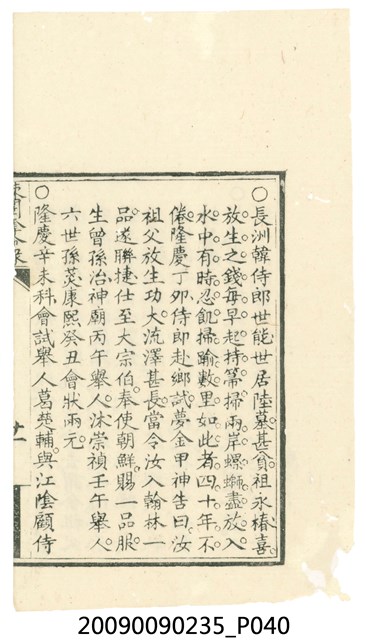 ○長洲韓侍郎世能世居陸墓甚貧祖永椿喜
放生之錢每早起持箒掃兩岸螺螄盡放入
水中有時忍飢掃踰數里如此者四十年不
倦隆慶丁夘侍郎赴鄉試夢金甲神告曰汝
祖父放生功大流澤甚長當令汝入翰林一
品遂聯捷仕至大宗伯奉使朝鮮賜一品服
生曾孫治神廟丙午舉人沐崇禎壬午舉人
六世孫菼康熙癸丑會狀兩元
○隆慶辛未科會試舉人葛 輔與江陰顧侍
廿一
20090090235_P040